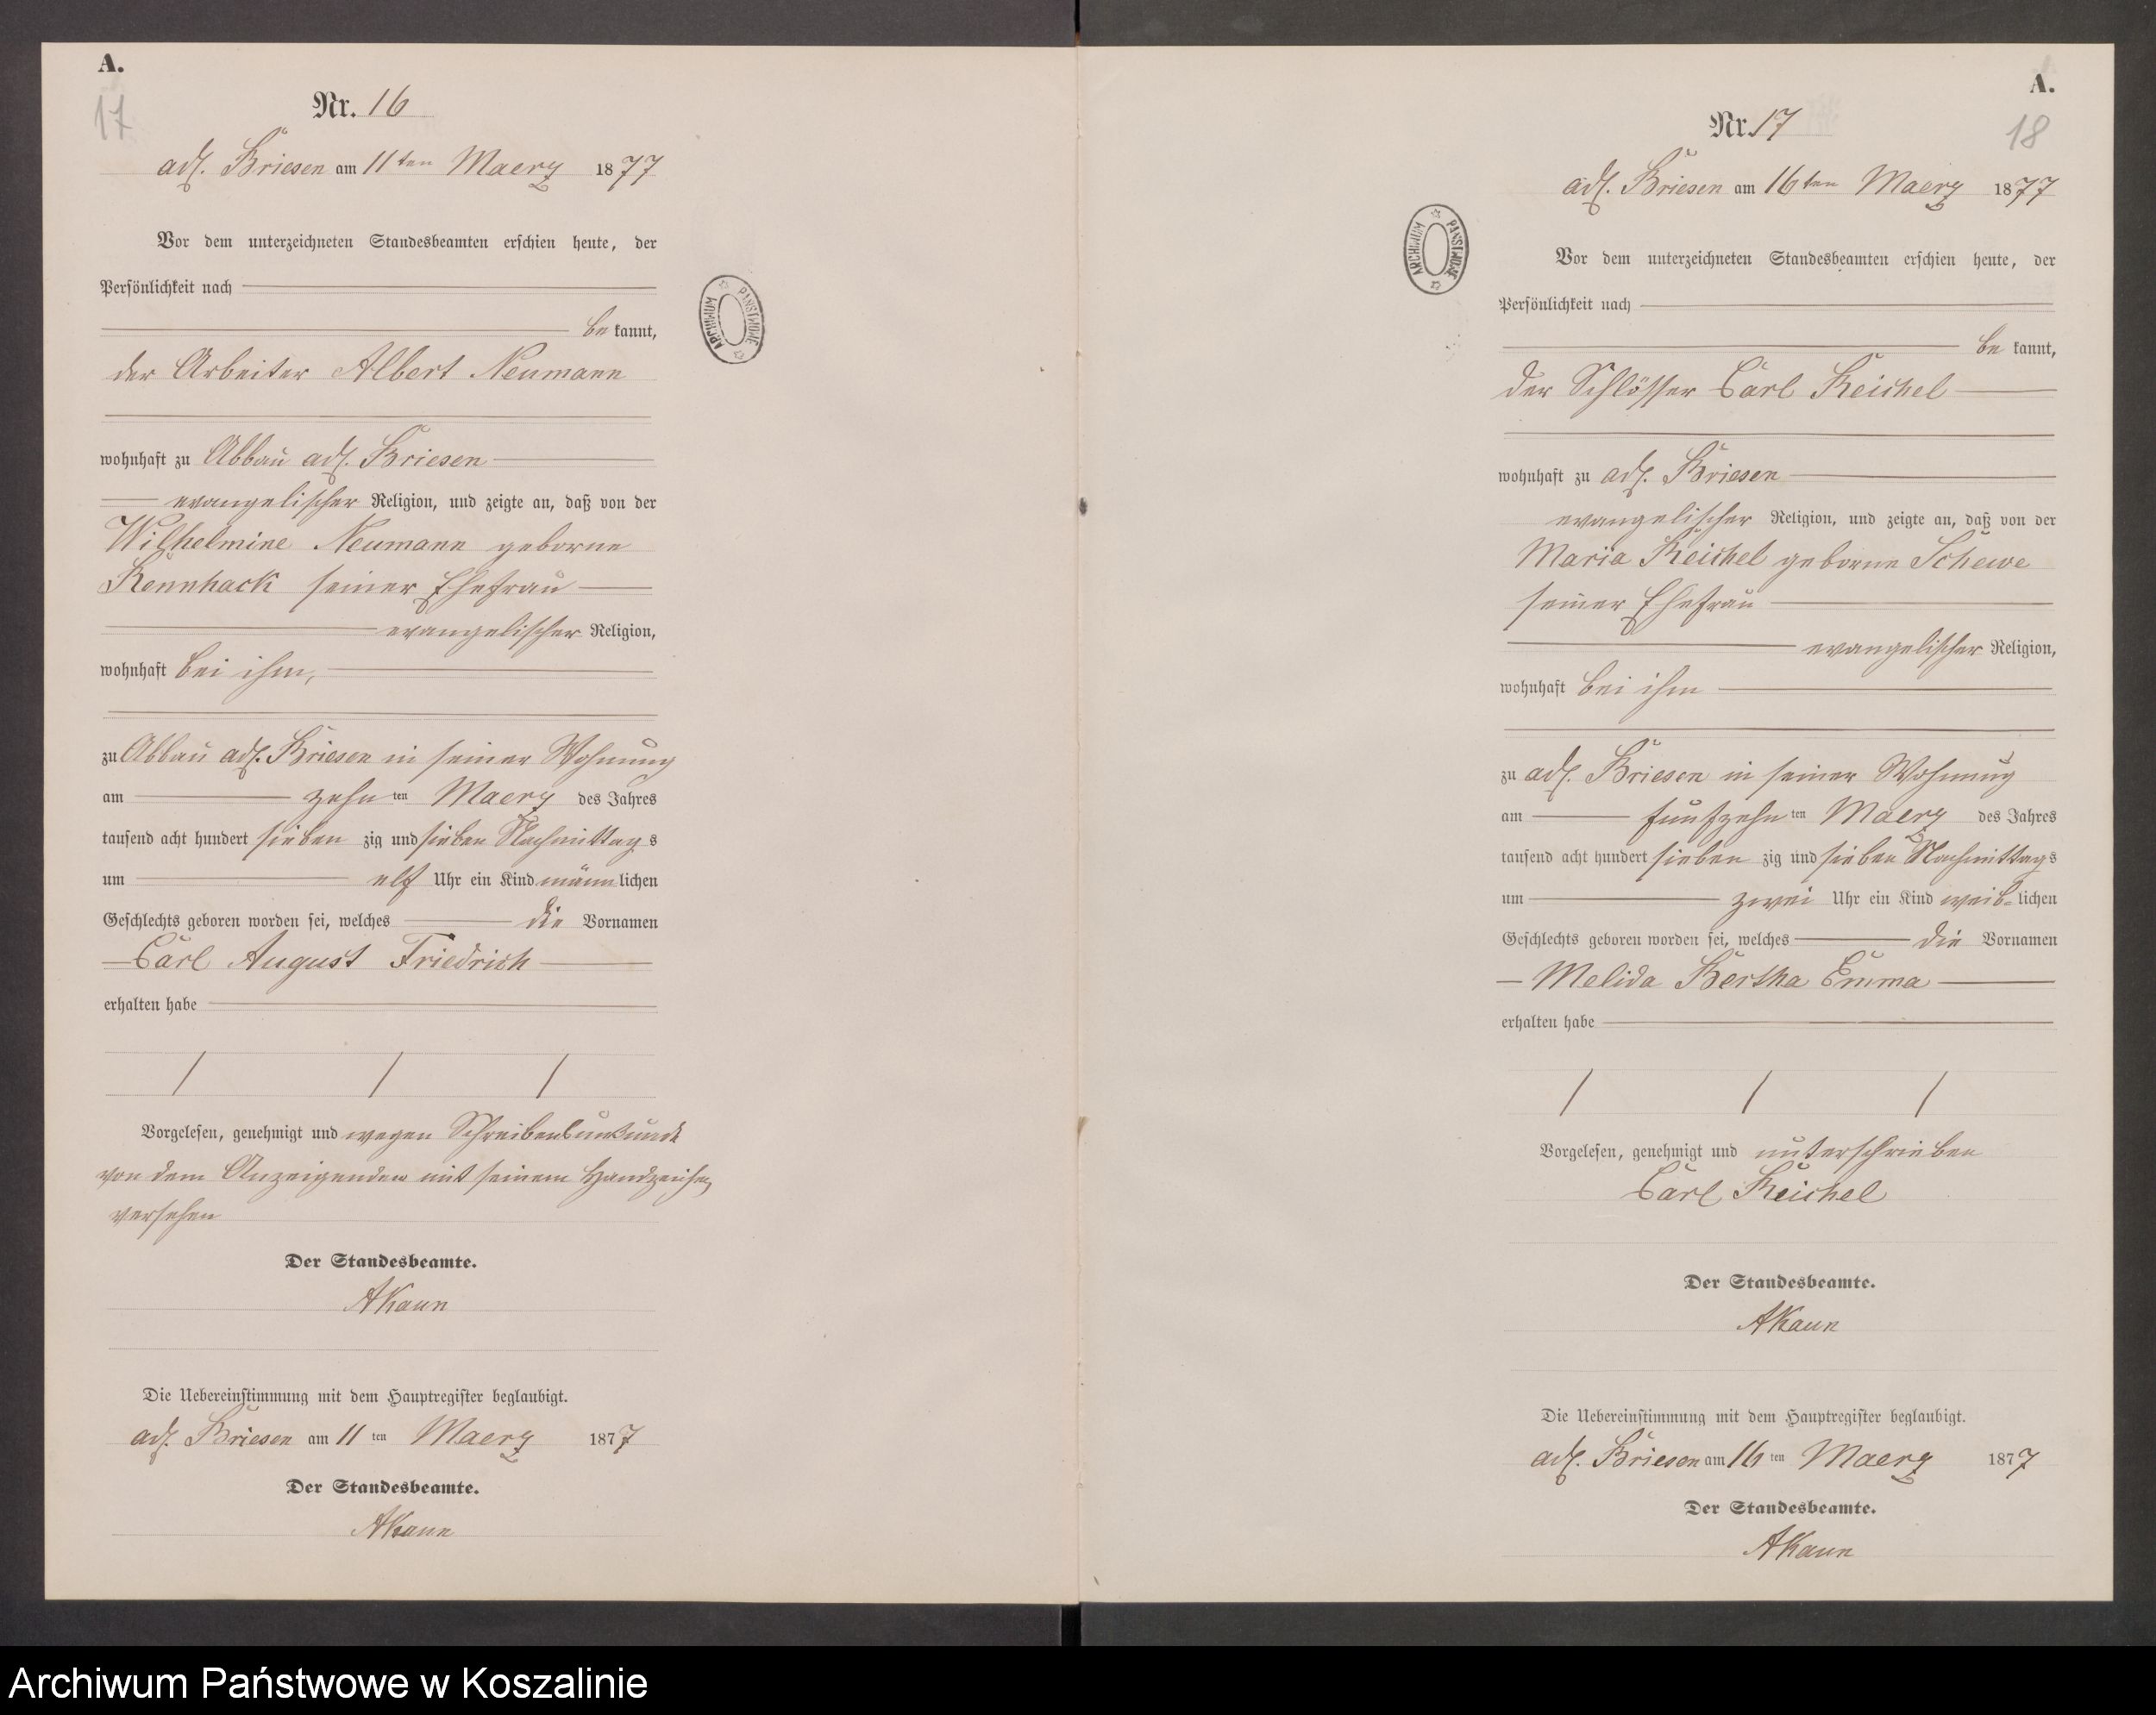 A.
17
Nr. 16
adl. Briesen am 11ten Maerz 1877
Vor dem unterzeichneten Standesbeamten erschien heute, der
Persönlichkeit nach
be kannt,
der Arbeiter Albert Neumann
wohnhaft zu Abbau adl. Briesen
evangelischer Religion, und zeigte an, daß von der
Wilhelmine Neumann geborne
Rennhack seiner Ehefrau
evangelischer Religion,
wohnhaft bei ihm,
zu Abbau adl. Briesen in seiner Wohnung
am zehn ten Maerz des Jahres
tausend acht hundert sieben zig und sieben Nachmittag s
um elf Uhr ein Kind männ lichen
Geschlechts geboren worden sei, welches die Vornamen
Carl August Friedrich
erhalten habe
Vorgelesen, genehmigt und wegen Schreibensunkunde
von dem Anzeigenden mit seinem Handzeichen
versehen
Der Standesbeamte.
AKaun
Die Uebereinstimmung mit dem Hauptregister beglaubigt.
adl. Briesen am 11 ten Maerz 1877
Der Standesbeamte.
AKaun
ARCHIWUM PAŃSTWOWE
A.
18
Nr. 17
adl. Briesen am 16ten Maerz 1877
Vor dem unterzeichneten Standesbeamten erschien heute, der
Persönlichkeit nach
be kannt,
der Schlösser Carl Reichel
wohnhaft zu adl. Briesen
evangelischer Religion, und zeigte an, daß von der
Maria Reichel geborne Schewe
seiner Ehefrau
evangelischer Religion,
wohnhaft bei ihm
zu adl. Briesen in seiner Wohnung
am funfzehn ten Maerz des Jahres
tausend acht hundert sieben zig und sieben Nachmittags
um zwei Uhr ein Kind weib- lichen
Geschlechts geboren worden sei, welches die Vornamen
Melida Bertha Emma
erhalten habe
Vorgelesen, genehmigt und unterschrieben
Carl Reichel
Der Standesbeamte.
AKaun
Die Uebereinstimmung mit dem Hauptregister beglaubigt.
adl. Briesen am 16 ten Maerz 1877
Der Standesbeamte.
AKaun
ARCHIWUM PAŃSTWOWE
Archiwum Państwowe w Koszalinie